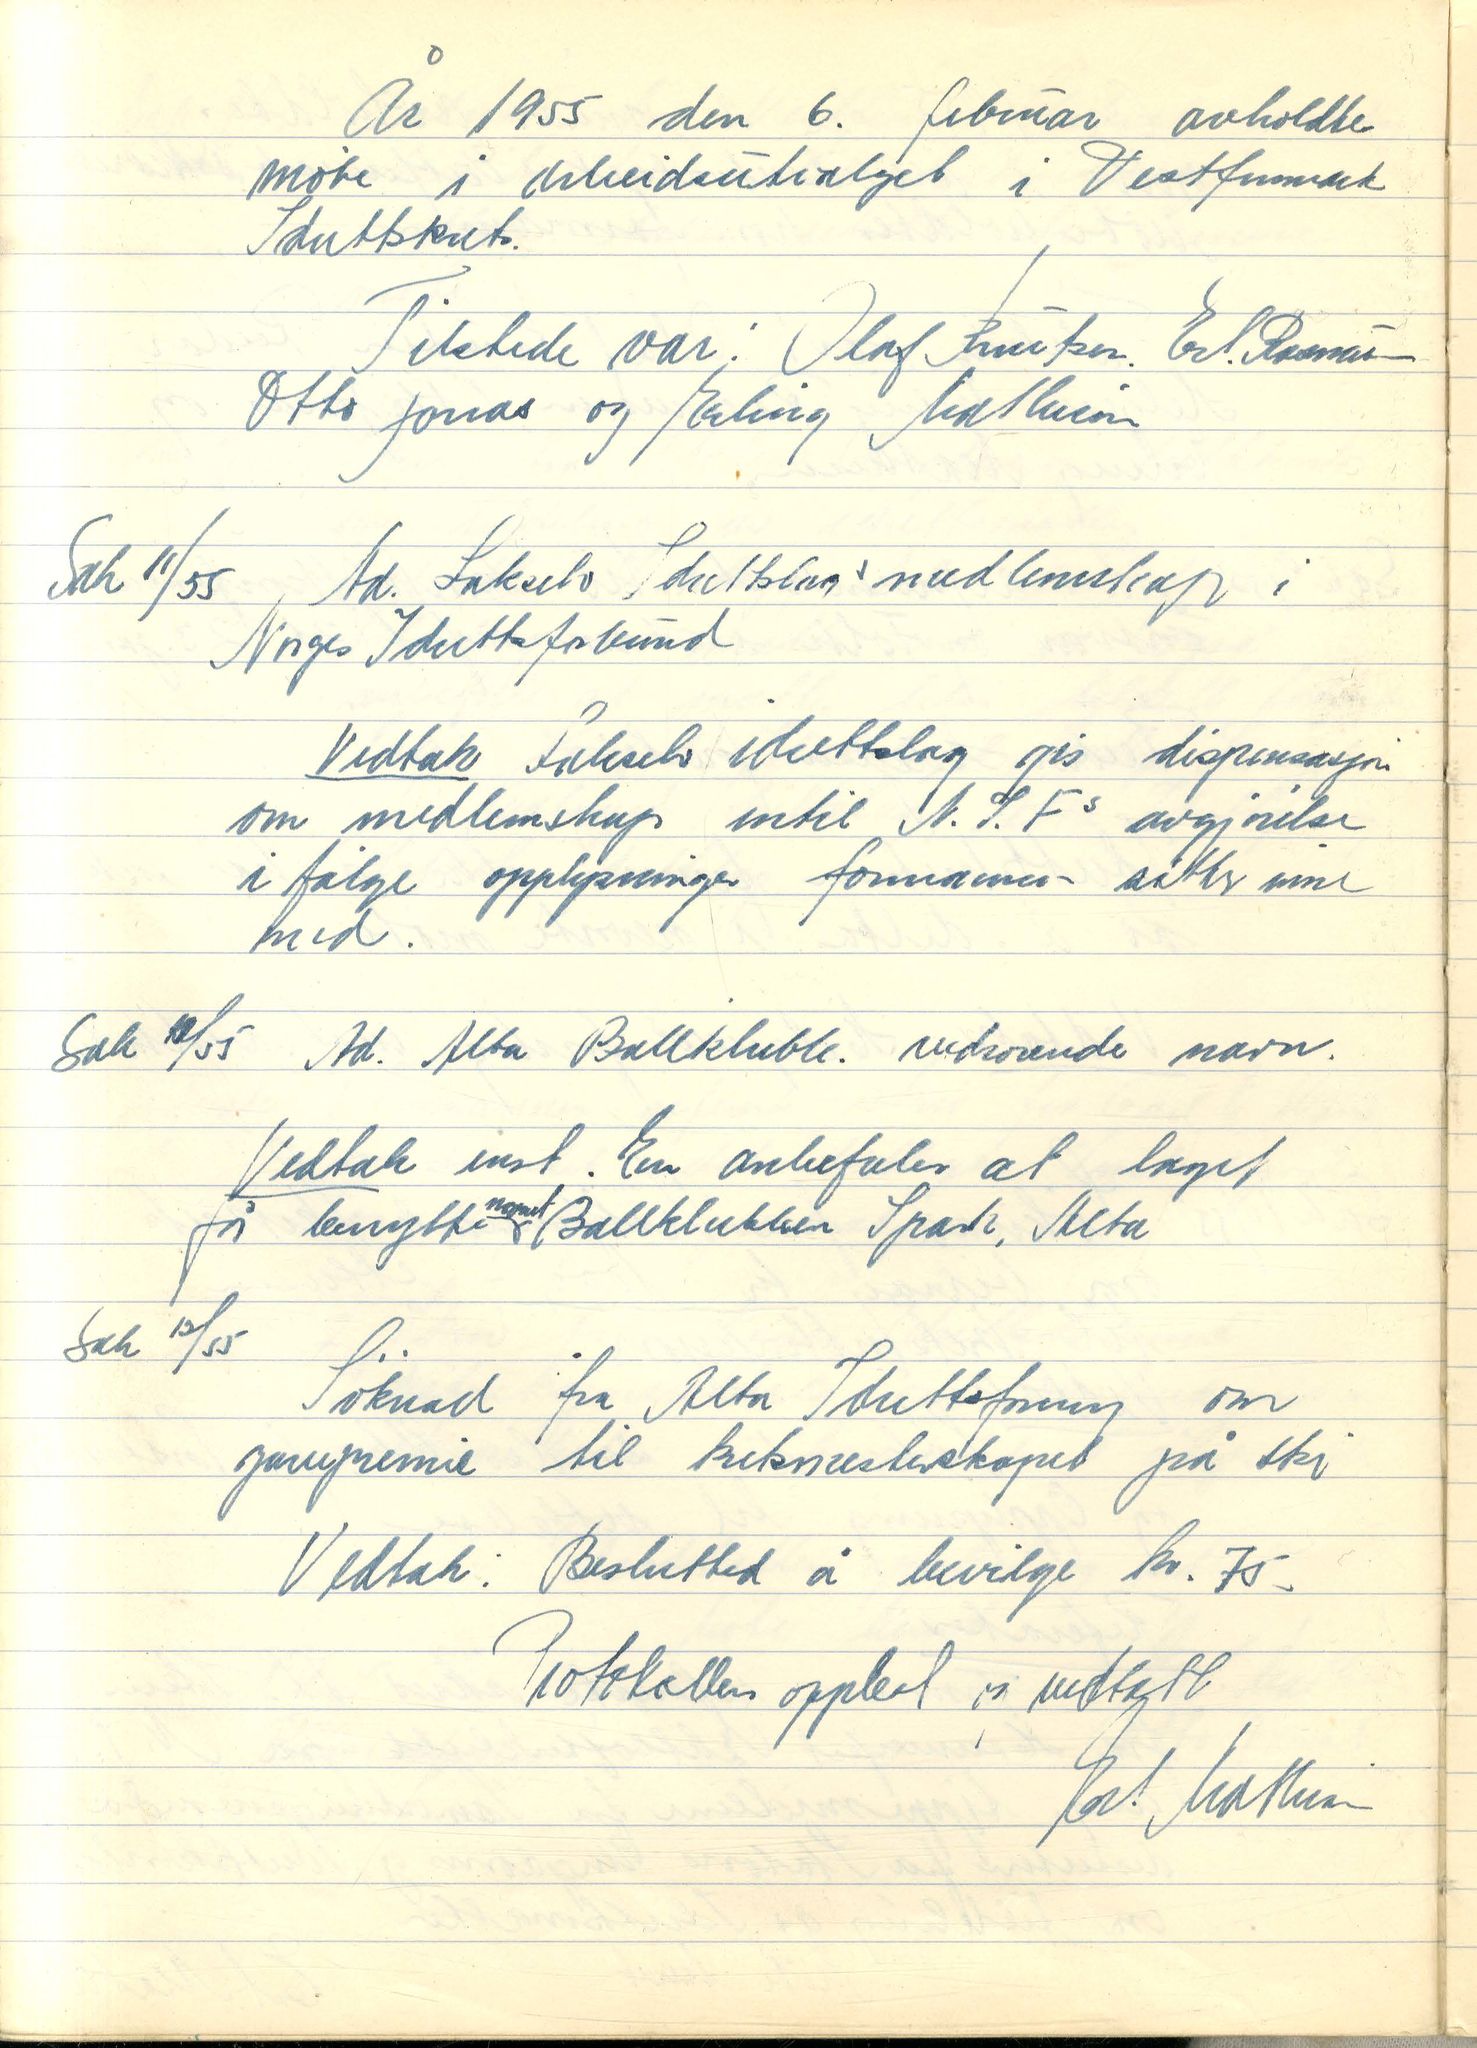 År 1955 den 6. februar avholdtes
möte i arbeidsutvalget i Vestfinnmark
Idrettskrets.
Tilstede var: Olaf Knutsen. Erl. Rasmus
Otto Jonas og Erling Mathisen
Sak 11/55 Ad. Lakselv Idrettslags medlemskap i
Norges Idrettsforbund
Vedtak Lakselv idrettslag gis dispensasjon
om medlemskap intil N.I.Fs avgjörelse
i fölge opplysninger formannen sitter inne
med.
Sak 12/55 Ad. Alta Ballklubb. vedrörende navn.
Vedtak enst. En anbefaler at laget
får benytte navnet Ballklubben Spark, Alta
Sak 13/55
Söknad fra Alta Idrettsforening om
gavepremie til kretsmesterskapet på ski
Vedtak: Beslutted å bevilge kr. 75.-
Protokollen opplest og vedtatt
Erl. Mathisen